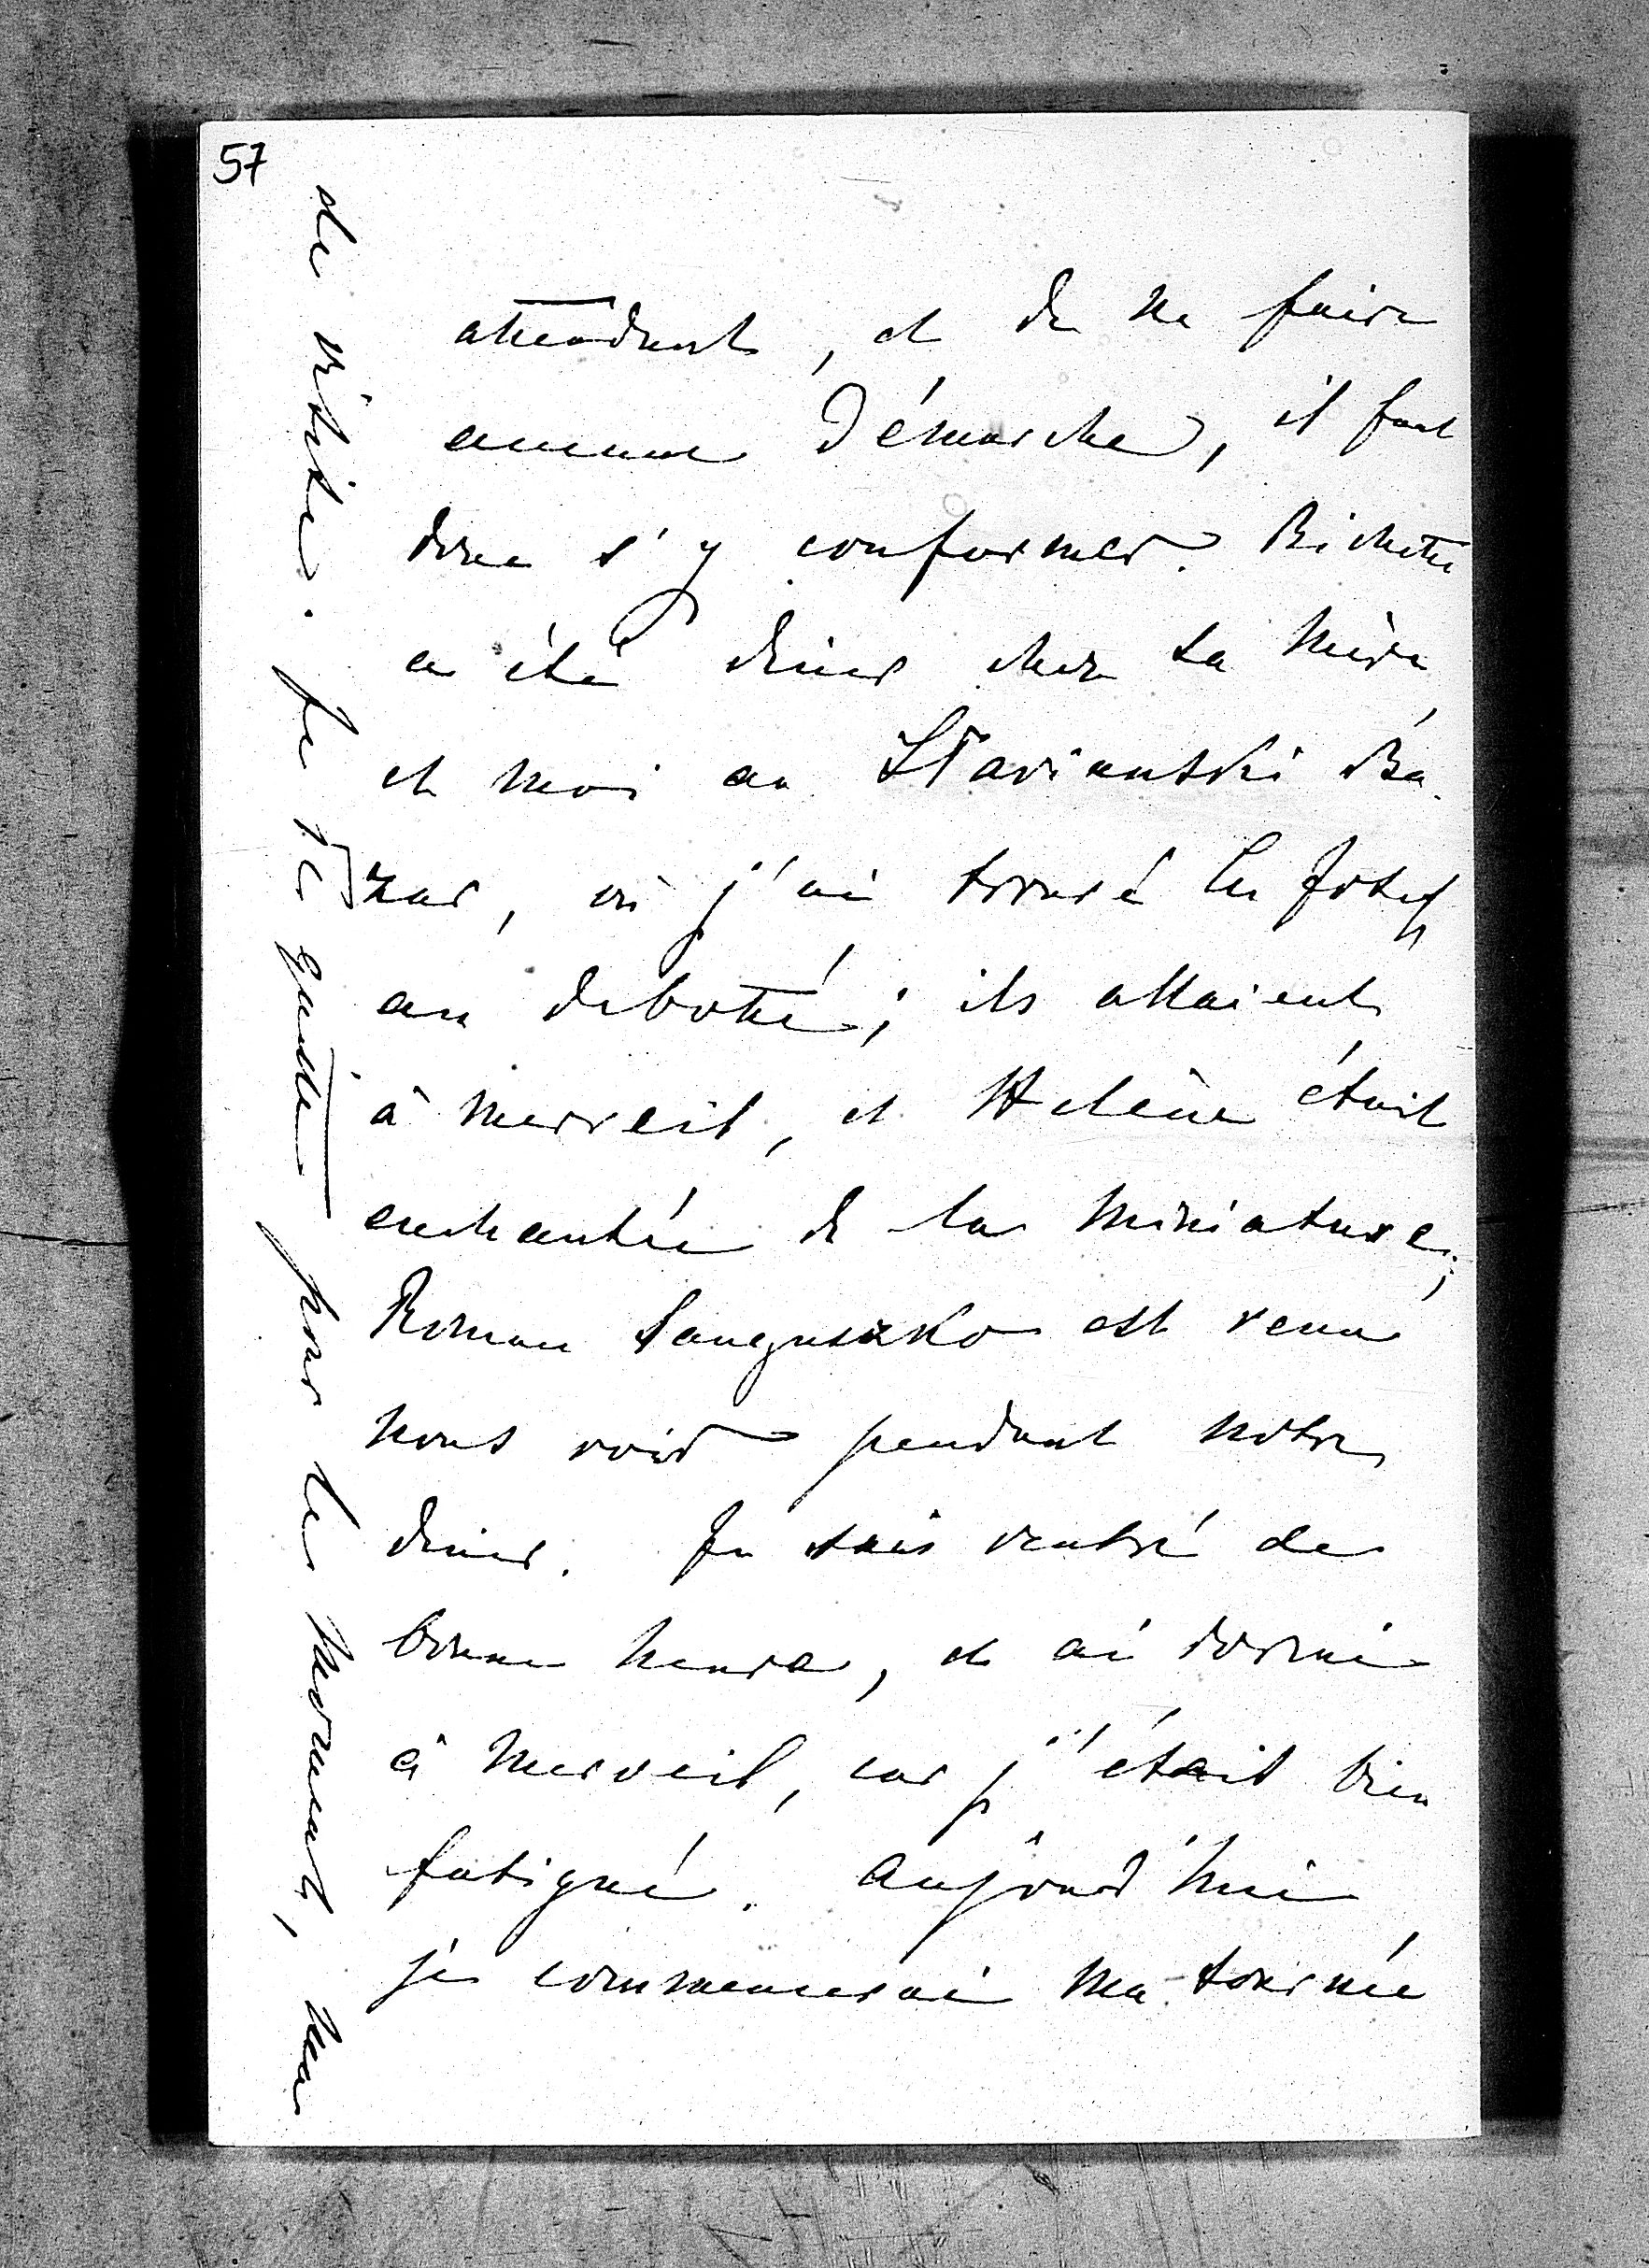 57
attendent, et de ne faire
aucune démarche, il faut
donc s'y conformer. Bichette
a été diner chez sa mère
et moi au Slavianski Ba-
zar, où j'ai trouvé les Josephs
au deboté; ils allaient
à merveil, et Helène était
enchantée de la miniature;
Roman Sanguszko est venu
nous voir pendant notre
diner. Je suis rentré de
bonne heure, et ai dormi
à merveil, car j'était bien
fatigué. Aujourd'hui
je commencerai ma tournée
de visites. Je te quitte pour le moment, ma